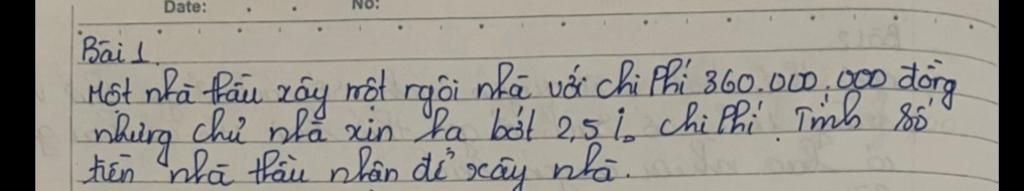 Date: No:
Bài 1.
Một nhà thầu xây một ngôi nhà với chi phí 360.000.000 đồng
nhưng chủ nhà xin hạ bớt 2,5% chi phí. Tính số
tiền nhà thầu nhận để xây nhà.